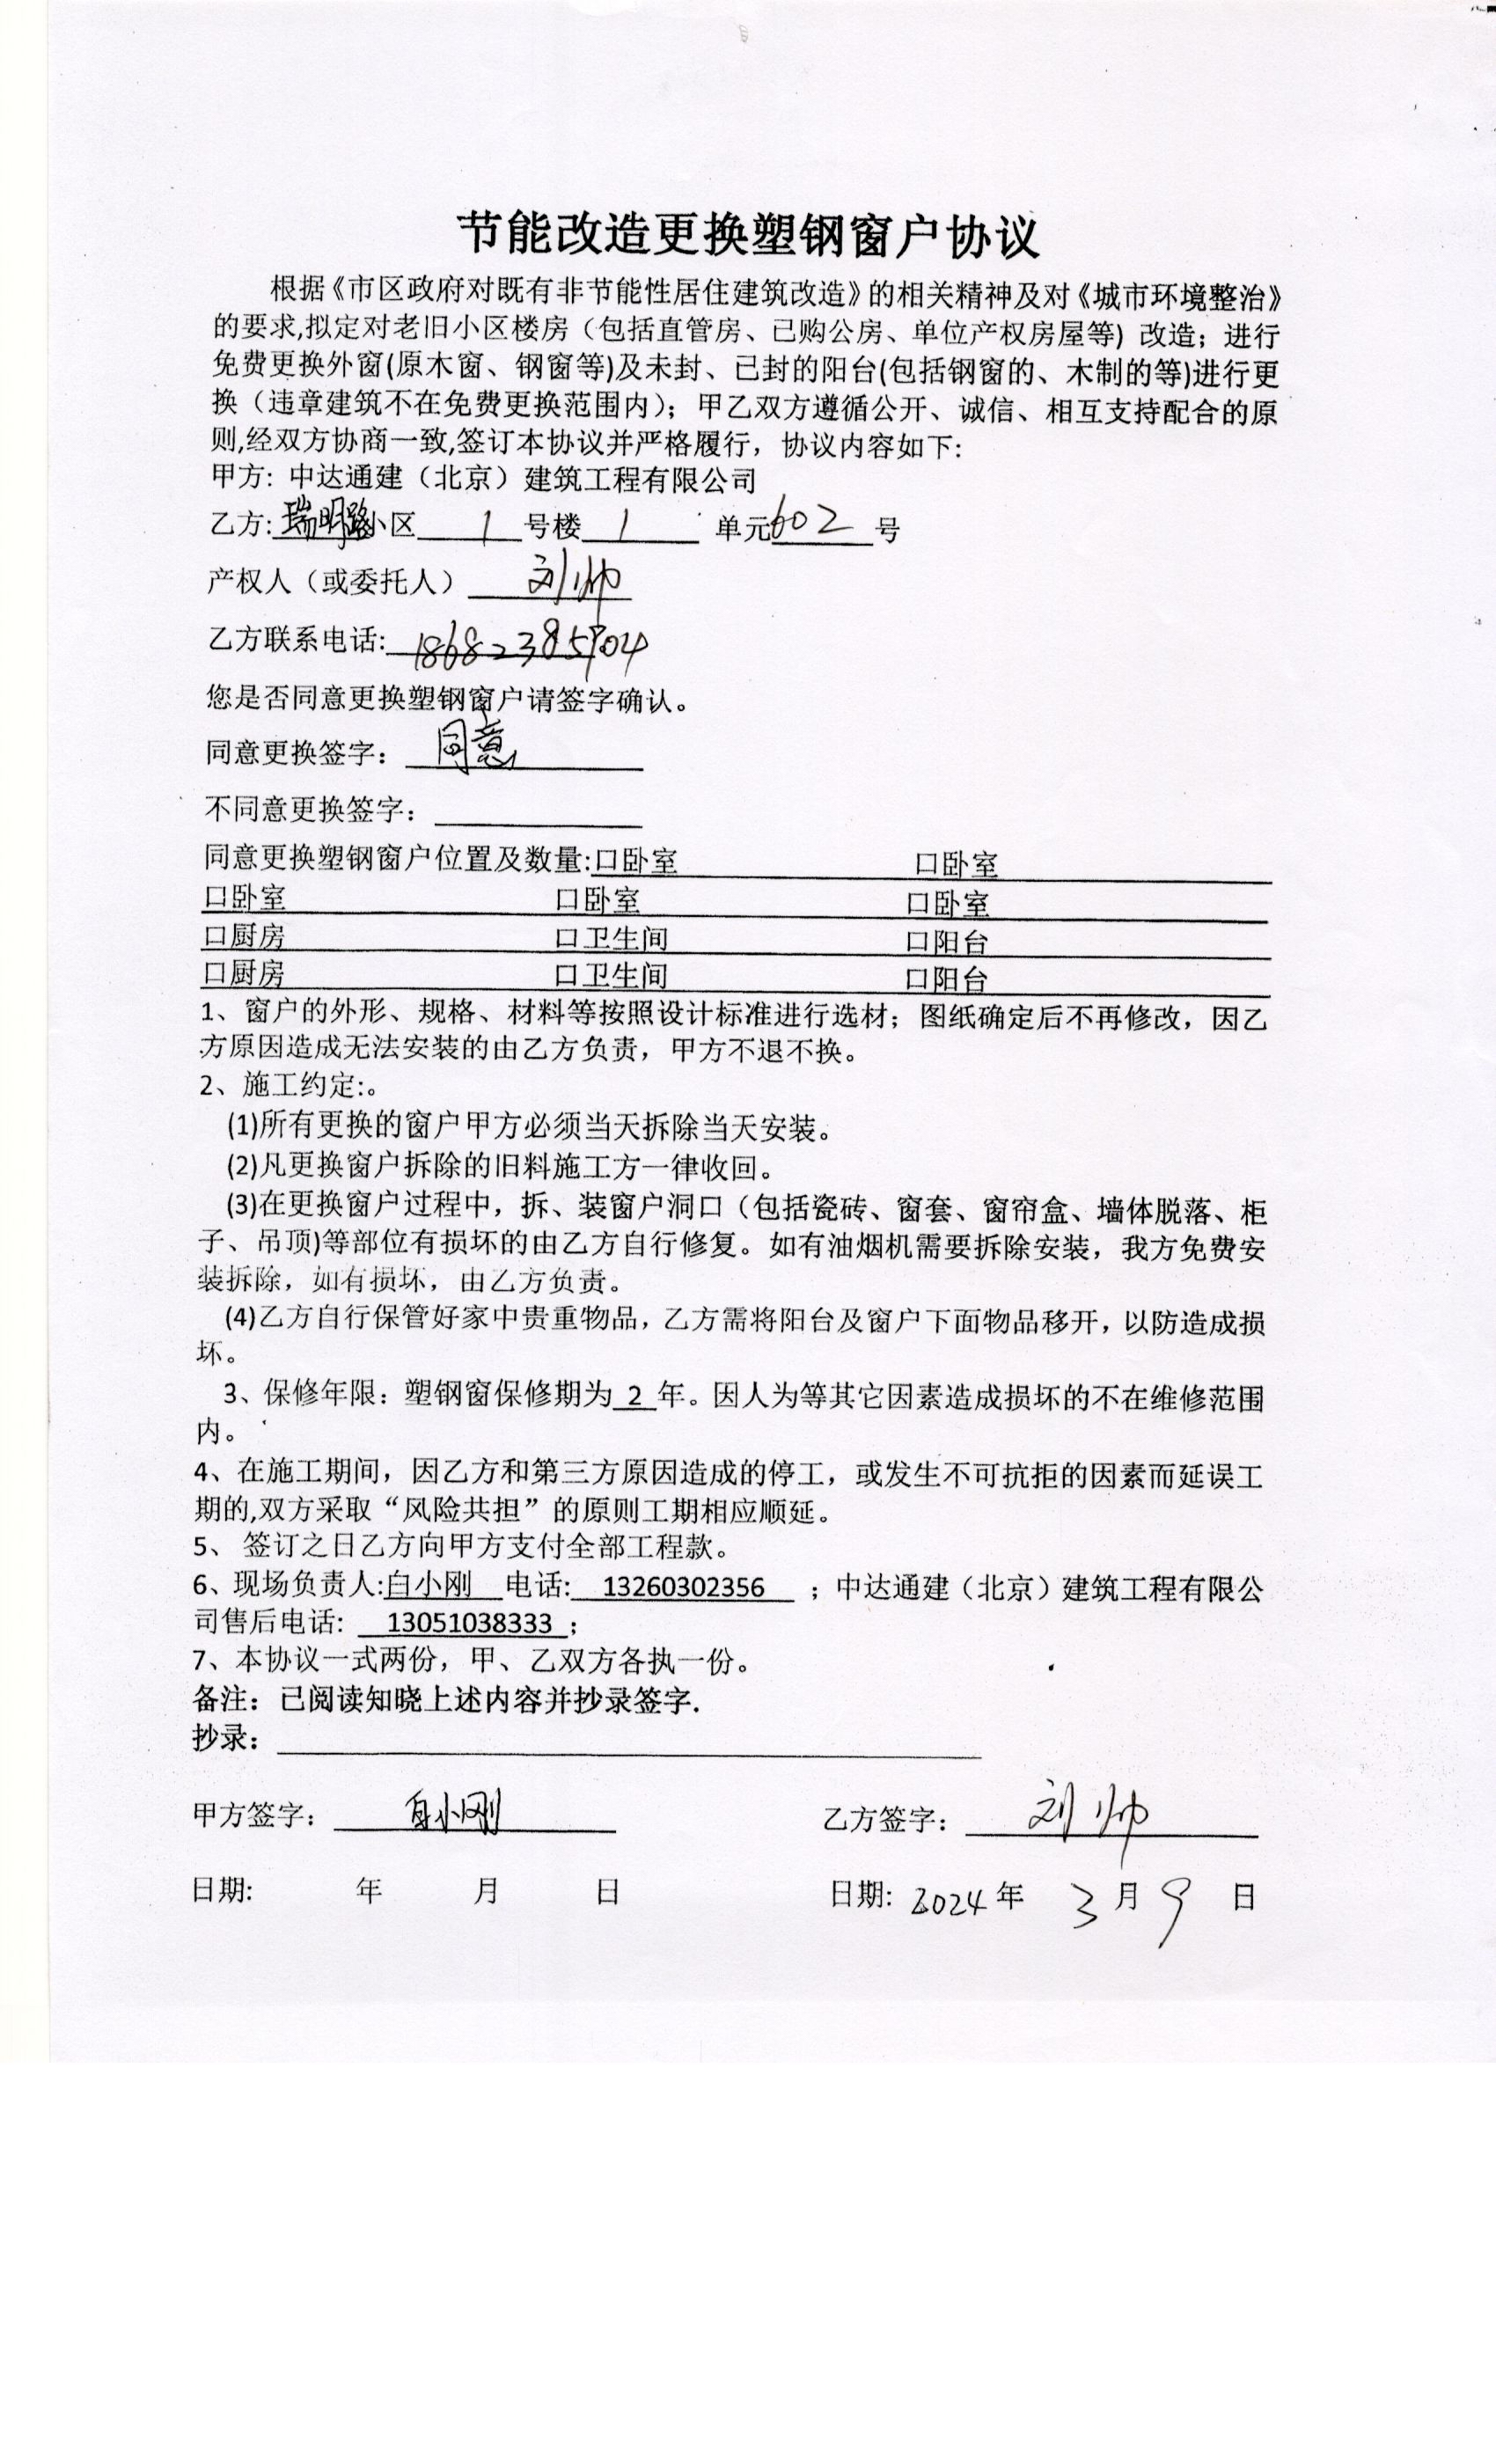 节能改造更换塑钢窗户协议
根据《市区政府对既有非节能性居住建筑改造》的相关精神及对《城市环境整治》
的要求,拟定对老旧小区楼房（包括直管房、已购公房、单位产权房屋等）改造；进行
免费更换外窗(原木窗、钢窗等)及未封、已封的阳台(包括钢窗的、木制的等)进行更
换（违章建筑不在免费更换范围内)；甲乙双方遵循公开、诚信、相互支持配合的原
则,经双方协商一致,签订本协议并严格履行，协议内容如下:
甲方: 中达通建（北京）建筑工程有限公司
乙方: 瑞明路小区 1 号楼 1 单元 602 号
产权人（或委托人） 刘帅
乙方联系电话: 18682385904
您是否同意更换塑钢窗户请签字确认。
同意更换签字： 同意
不同意更换签字：
同意更换塑钢窗户位置及数量:口卧室 口卧室
口卧室 口卧室 口卧室
口厨房 口卫生间 口阳台
口厨房 口卫生间 口阳台
1、窗户的外形、规格、材料等按照设计标准进行选材；图纸确定后不再修改，因乙
方原因造成无法安装的由乙方负责，甲方不退不换。
2、施工约定:。
(1)所有更换的窗户甲方必须当天拆除当天安装。
(2)凡更换窗户拆除的旧料施工方一律收回。
(3)在更换窗户过程中，拆、装窗户洞口（包括瓷砖、窗套、窗帘盒、墙体脱落、柜
子、吊顶)等部位有损坏的由乙方自行修复。如有油烟机需要拆除安装，我方免费安
装拆除，如有损坏，由乙方负责。
(4)乙方自行保管好家中贵重物品，乙方需将阳台及窗户下面物品移开，以防造成损
坏。
3、保修年限：塑钢窗保修期为 2 年。因人为等其它因素造成损坏的不在维修范围
内。
4、在施工期间，因乙方和第三方原因造成的停工，或发生不可抗拒的因素而延误工
期的,双方采取“风险共担”的原则工期相应顺延。
5、 签订之日乙方向甲方支付全部工程款。
6、现场负责人:白小刚 电话: 13260302356 ；中达通建（北京）建筑工程有限公
司售后电话: 13051038333 ；
7、本协议一式两份，甲、乙双方各执一份。
备注：已阅读知晓上述内容并抄录签字.
抄录：
甲方签字： 白小刚 乙方签字： 刘帅
日期: 年 月 日 日期: 2024年 3月9 日